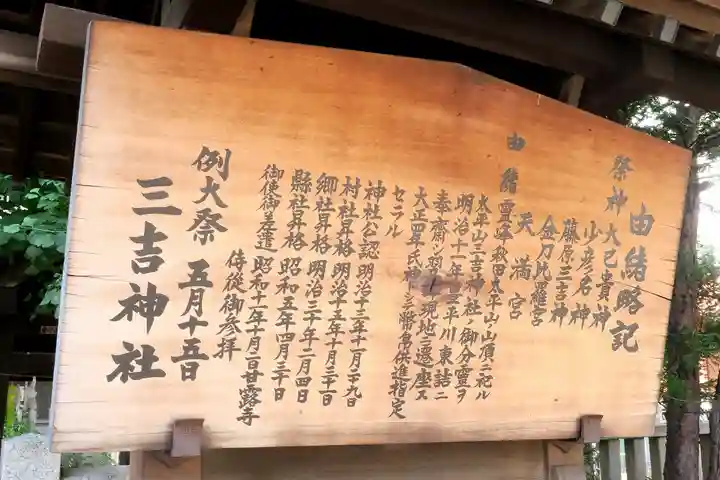 由緒略記
祭神 大己貴神
少彦名神
藤原三吉神
金刀比羅宮
天満宮
由緒 霊峰秋田太平山ノ山頂ニ祀ル
太平山三吉神社ノ御分霊ヲ
明治十一年 平川東詰ニ
奉斎シ 現地ニ遷座ス
大正四年氏神 シ幣帛供進指定
セラル
神社公認 明治十三年十一月二十九日
村社昇格 明治十五年十月三十一日
郷社昇格 明治三十年二月四日
縣社昇格 昭和五年四月三十日
御使御差遣 昭和十一年十月二日甘露寺
侍従御参拝
例大祭 五月十五日
三吉神社